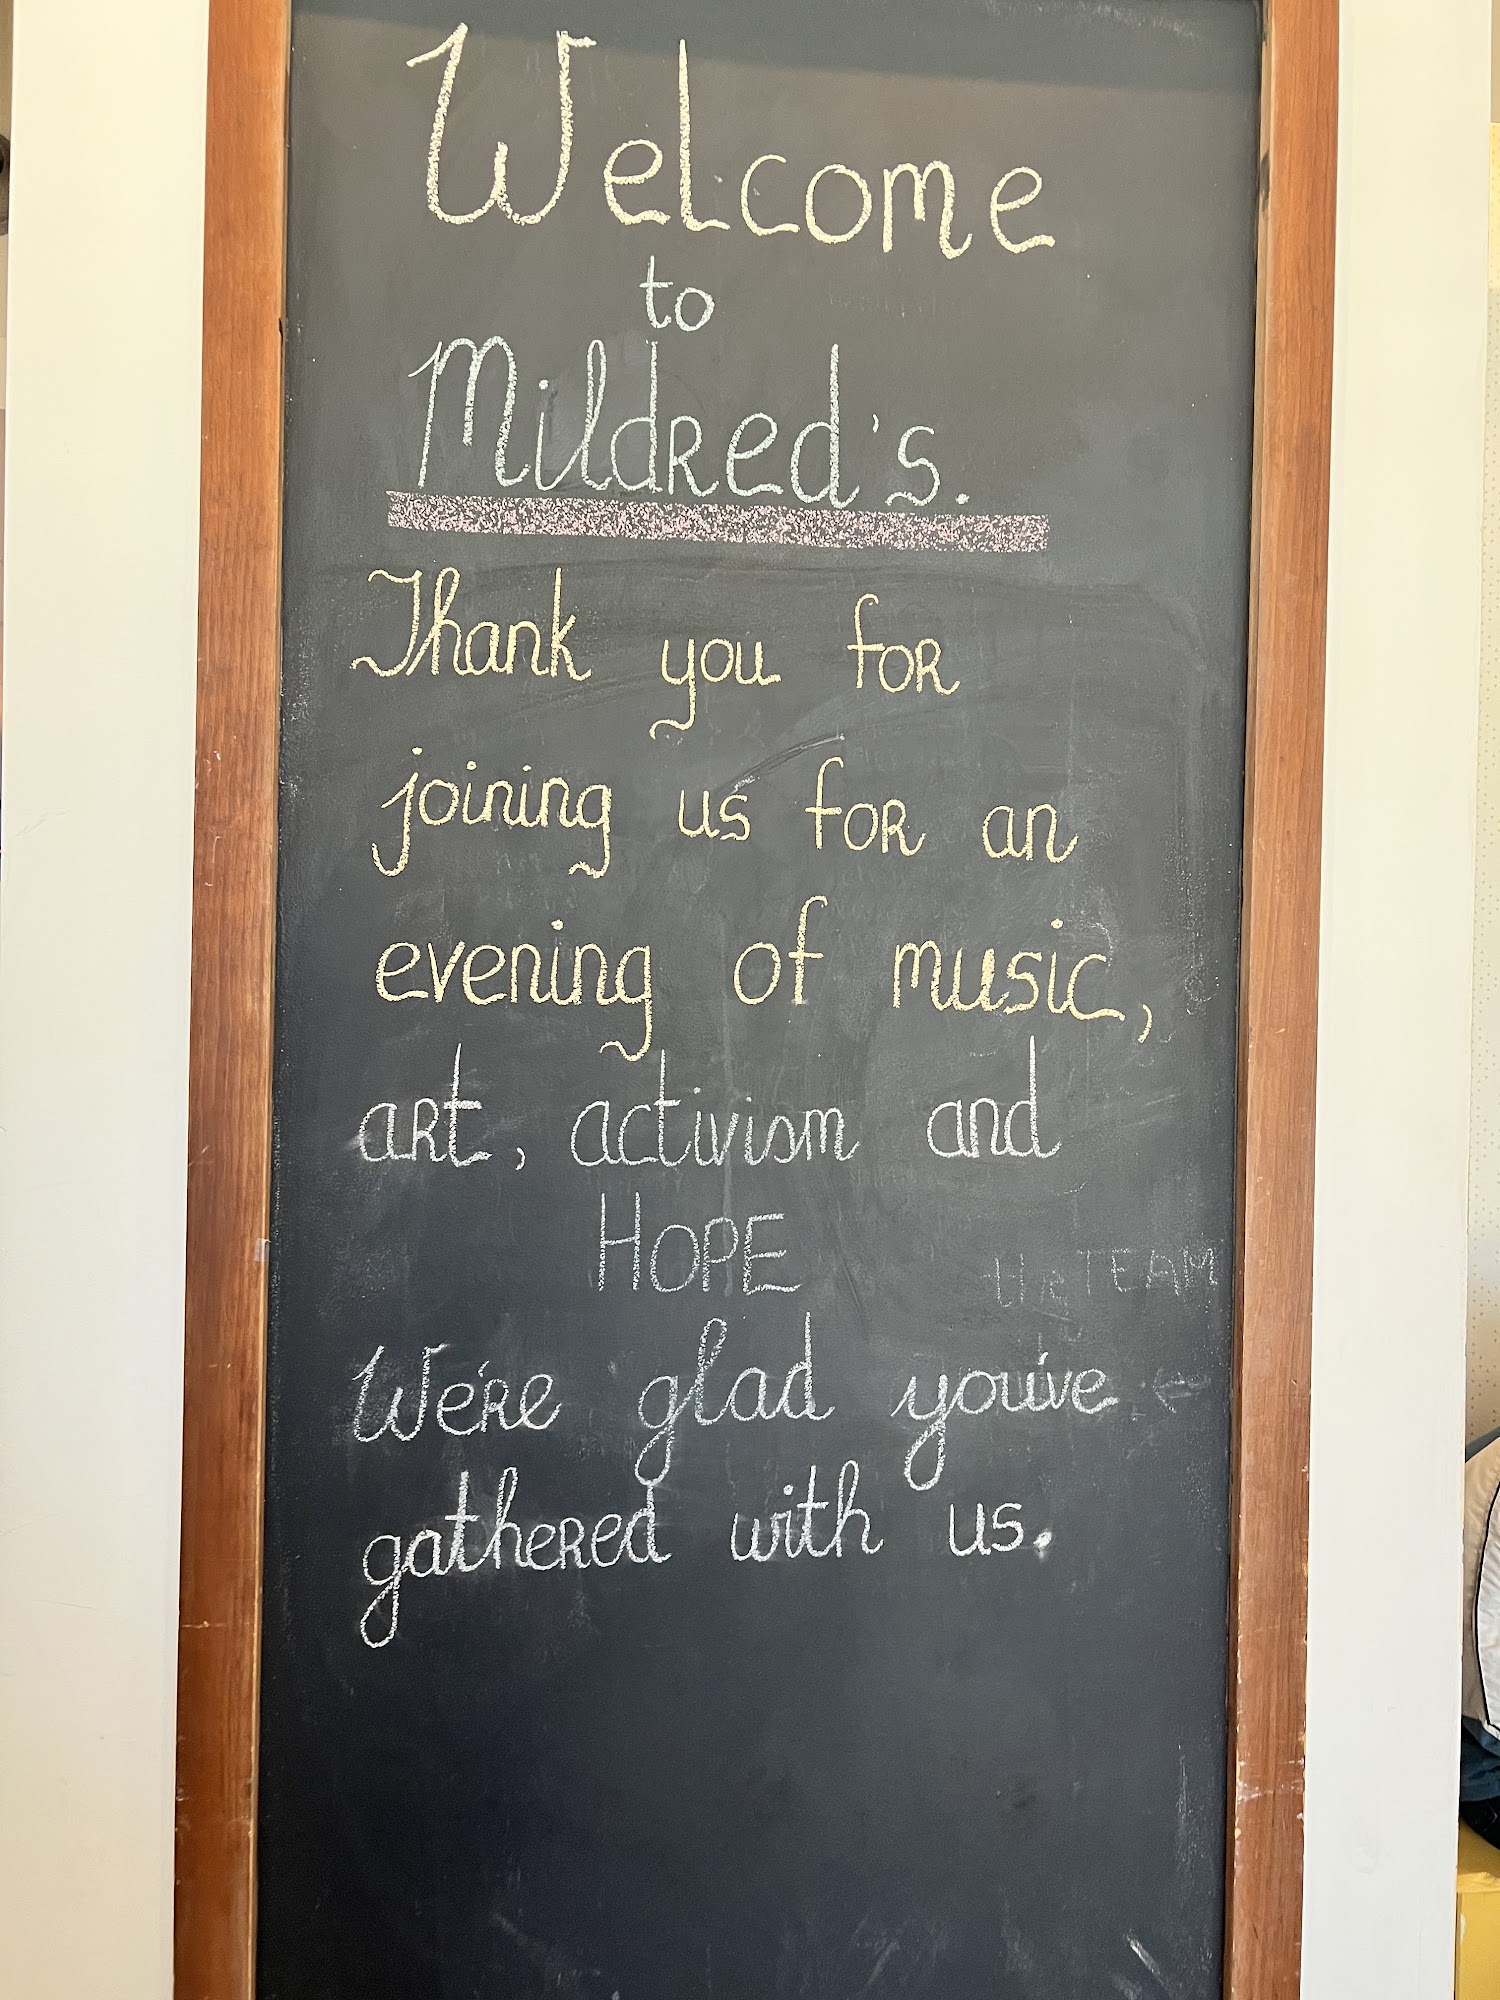 Welcome
to
Mildred's.
Thank you for
joining us for an
evening of music,
art, activism and
HOPE
We're glad you've
gathered with us.